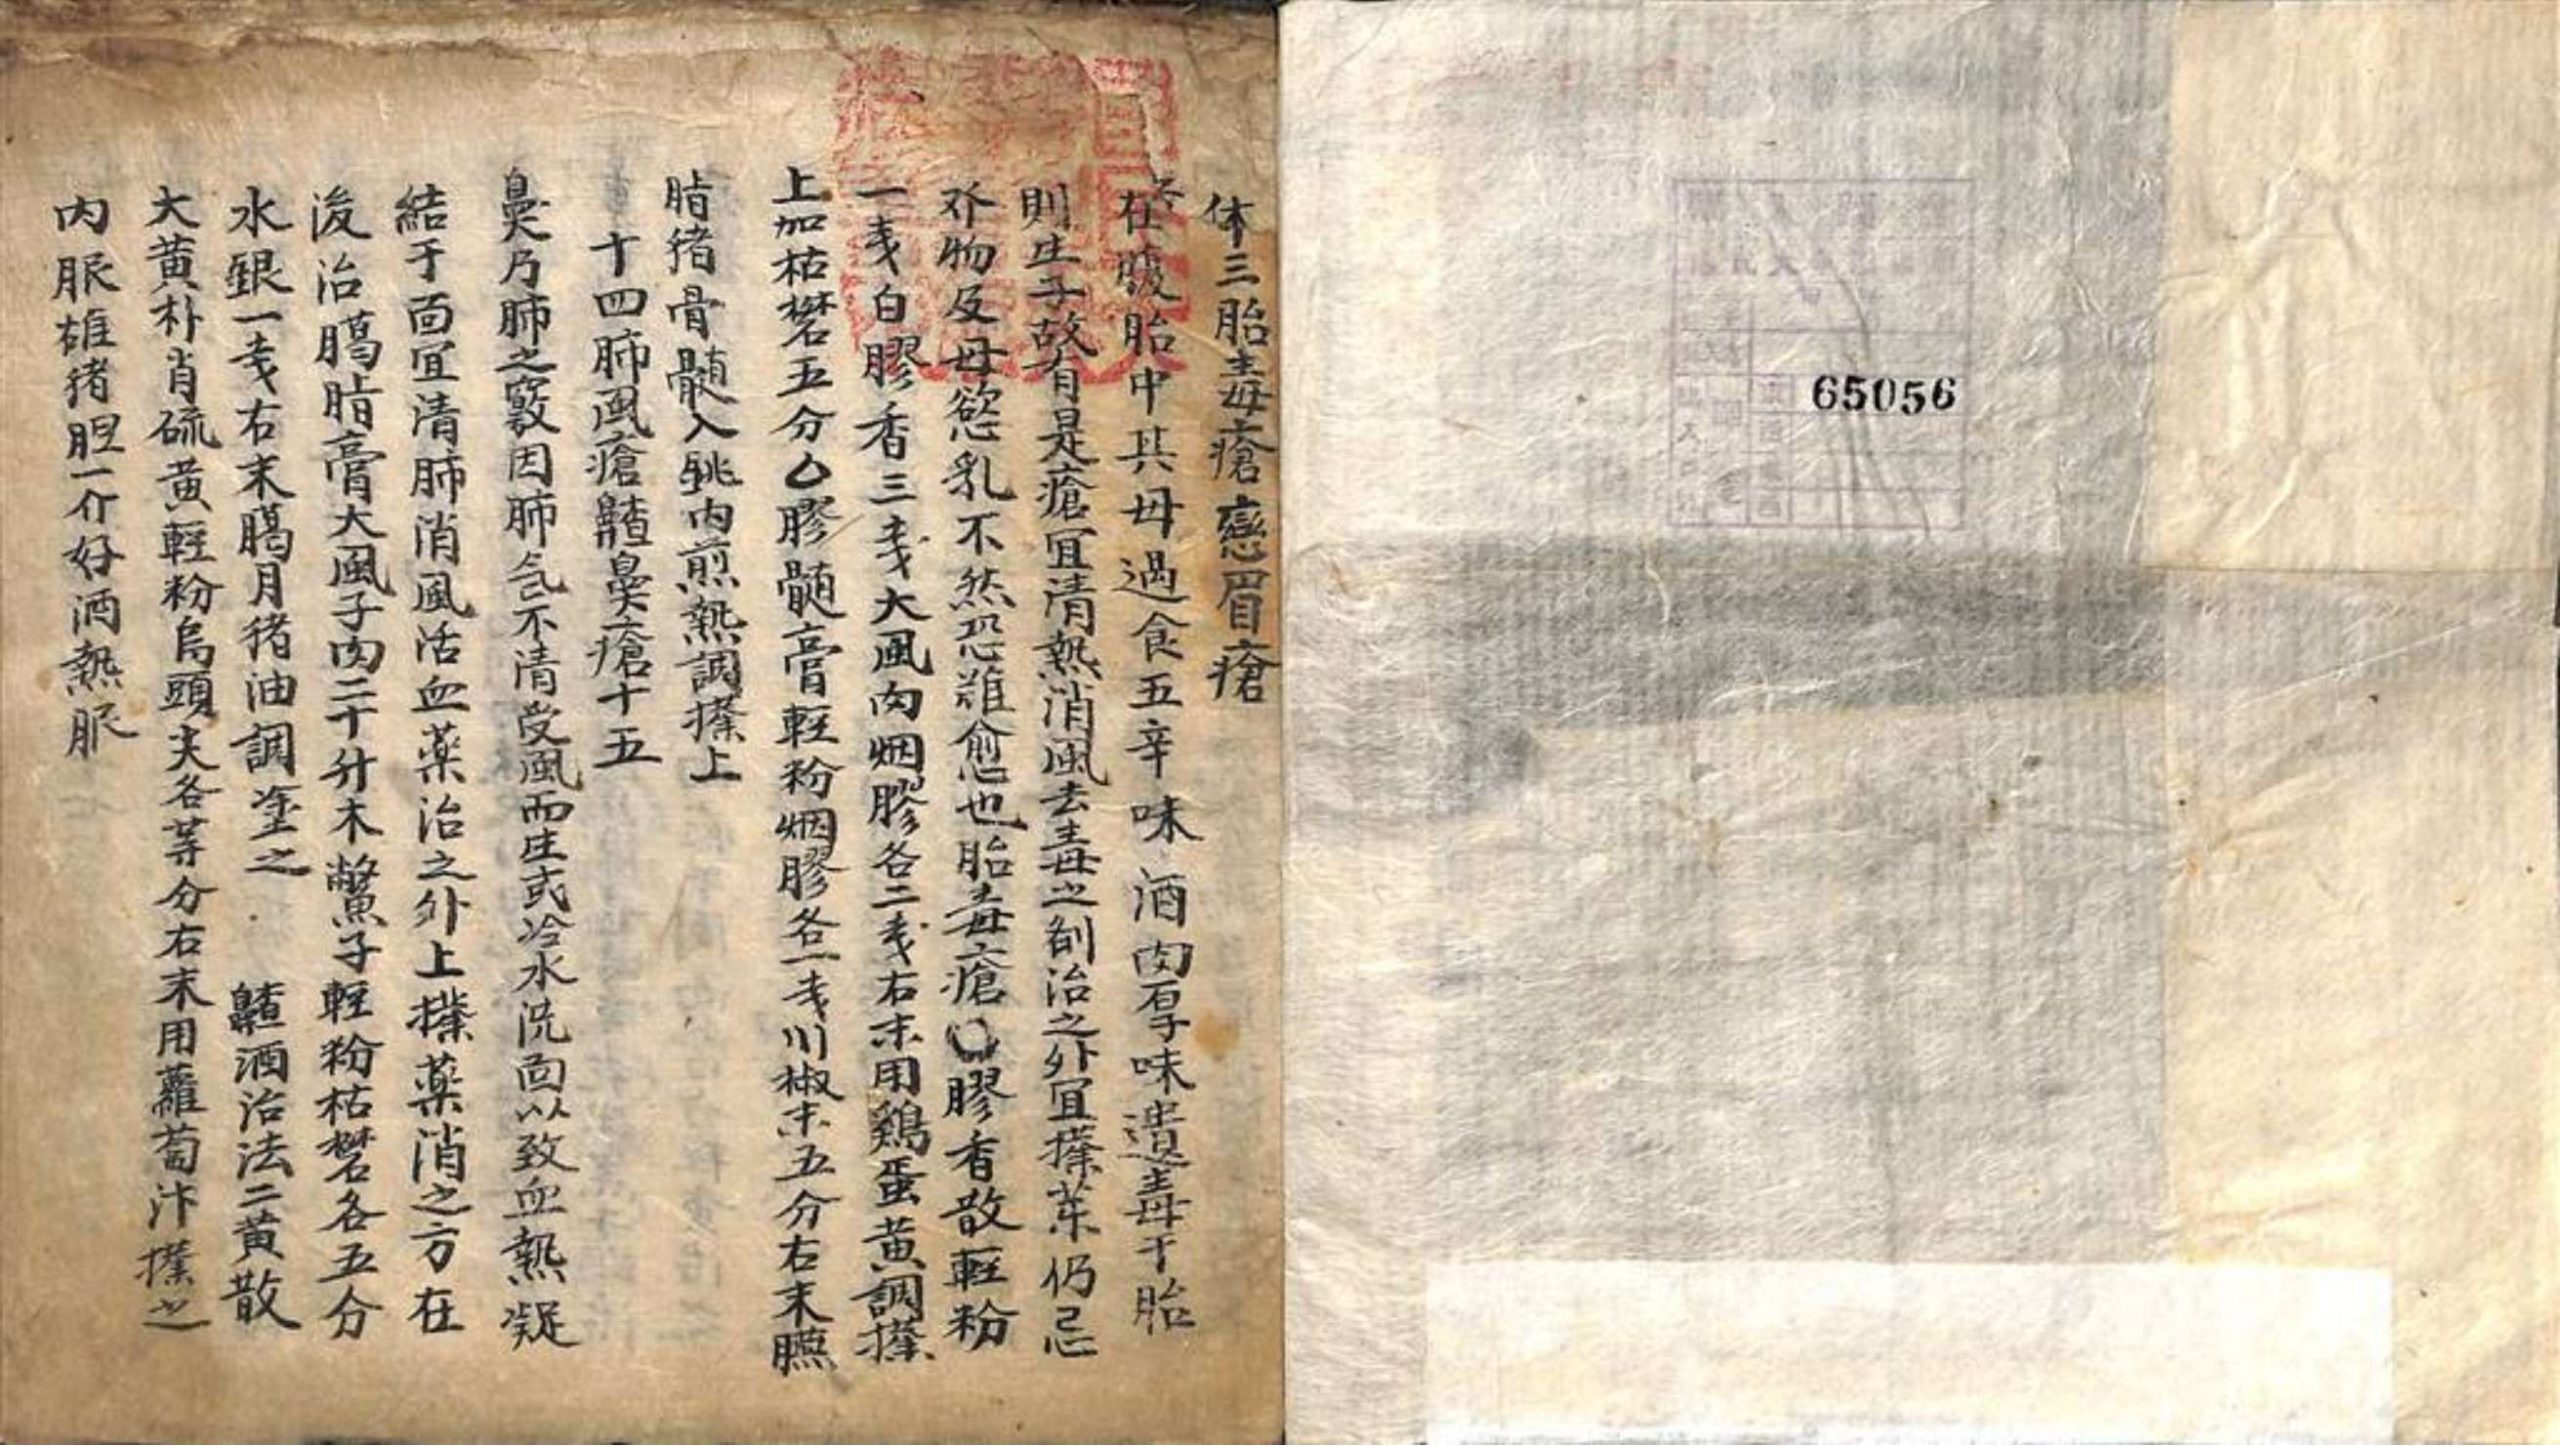 体三胎毒瘡戀眉瘡
在腹胎中其母過食五辛味酒肉厚味遺毒于胎
則生子故有是瘡宜清熱消風去毒之剤治之外宜搽薬仍忌
㸃物及母慾乳不然恐難愈也胎毒瘡〇膠香散輕粉
一戔白膠香三戔大風肉烟膠各二戔右末用鷄蛋黄調搽
上加枯礬五分〇膠髄膏輕粉烟膠各一戔川椒末五分右末臙
脂猪骨髄入銚内煎熱調搽上
十四肺風瘡齄鼻瘡十五
鼻乃肺之竅因肺气不清受風而生或冷水洗面以致血熱凝
結于面宜清肺消風活血薬治之外上搽薬消之方在
後治臈脂膏大風子肉二十分木鱉子輕粉枯礬各五分
水銀一戔右末臈月猪油調塗之 齄酒治法二黄散
大黄朴肖硫黄輕粉烏頭夫各等分右末用蘿蔔汁搽之
内服雄猪胆一介好酒熱服
65056